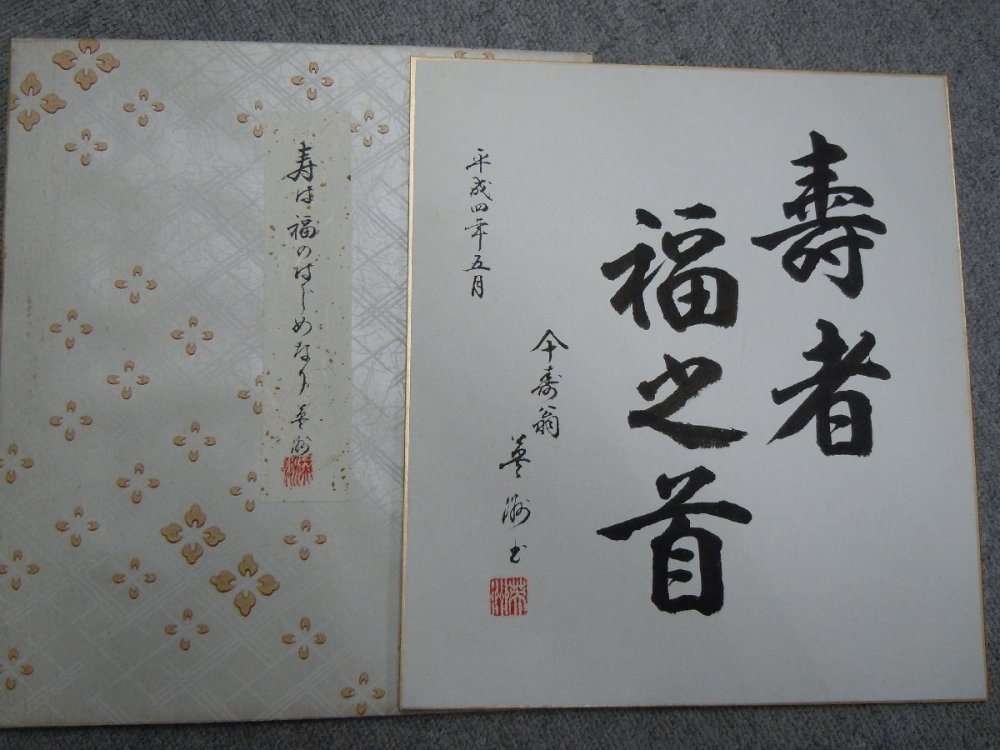 壽者
福之首
平成四年五月
仐壽翁
英洲書
寿は福のはじめなり
英洲